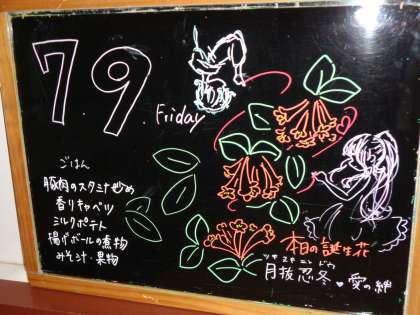 7.9
Friday
ごはん
豚肉のスタミナ炒め
香りキャベツ
ミルクポテト
揚げボールの煮物
みそ汁・果物
本日の誕生花
ツキヌキニンドウ
月抜忍冬 愛の絆